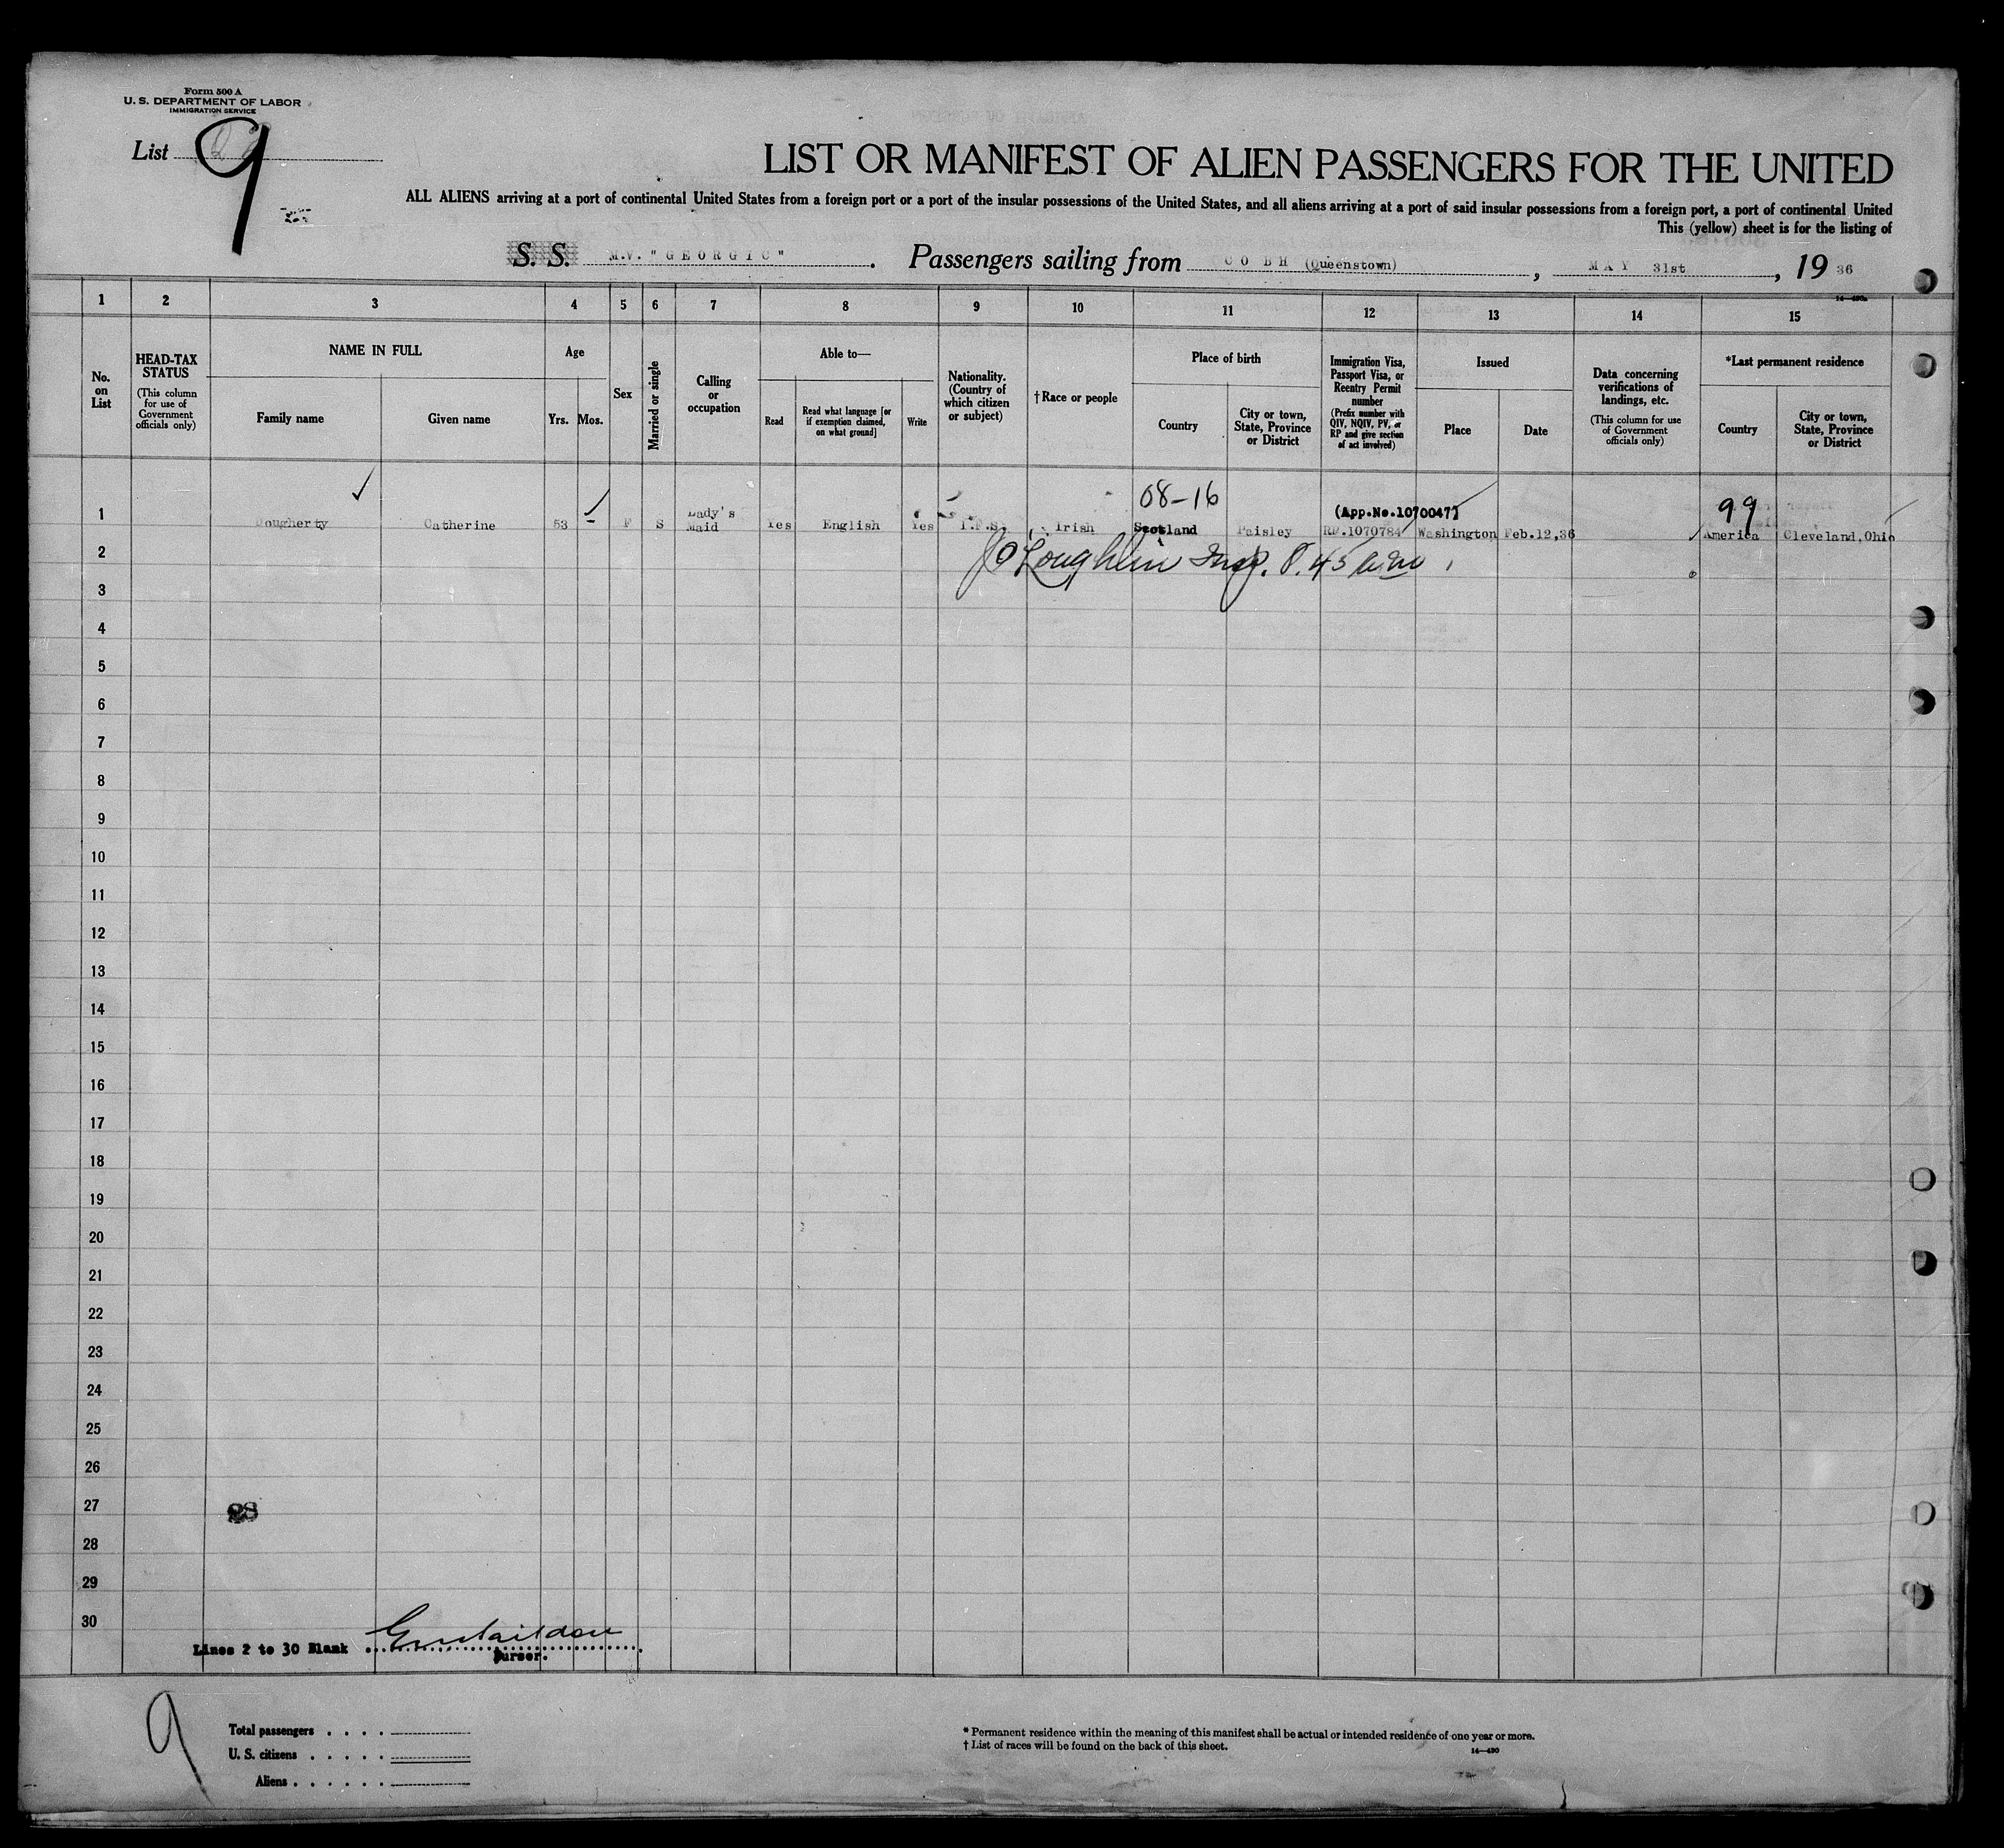 Form 500 A
U. S. DEPARTMENT OF LABOR
IMMIGRATION SERVICE
List 9
LIST OR MANIFEST OF ALIEN PASSENGERS FOR THE UNITED
ALL ALIENS arriving at a port of continental United States from a foreign port or a port of the insular possessions of the United States, and all aliens arriving at a port of said insular possessions from a foreign port, a port of continental United
This (yellow) sheet is for the listing of
S. S. M.V. "GEORGIC". Passengers sailing from COBH (Queenstown), MAY 31st, 19 36
14—420a
1 2 3 4 5 6 7 8 9 10 11 12 13 14 15
No. on List
HEAD-TAX STATUS
(This column for use of Government officials only)
NAME IN FULL
Family name
Given name
Age
Yrs.
Mos.
Sex
Married or single
Calling or occupation
Able to—
Read
Read what language [or if exemption claimed, on what ground]
Write
Nationality. (Country of which citizen or subject)
†Race or people
Place of birth
Country
City or town, State, Province or District
Immigration Visa, Passport Visa, or Reentry Permit number
(Prefix number with QIV, NQIV, PV, or RP and give section of act involved)
Issued
Place
Date
Data concerning verifications of landings, etc.
(This column for use of Government officials only)
*Last permanent residence
Country
City or town, State, Province or District
08-16
(App.No.1070047)
99
1 Dougherty Catherine 53 - F S Lady's Maid Yes English Yes I.F.S. Irish Scotland Paisley RP.1070784 Washington Feb.12,36 America Cleveland,Ohio
2
J O'Loughlin Insp. 8.45 a.m.
3
4
5
6
7
8
9
10
11
12
13
14
15
16
17
18
19
20
21
22
23
24
25
26
27
28
29
30
Lines 2 to 30 Blank
Purser.
9
Total passengers . . . .
U. S. citizens . . . . .
Aliens . . . . . .
* Permanent residence within the meaning of this manifest shall be actual or intended residence of one year or more.
† List of races will be found on the back of this sheet.
14—420